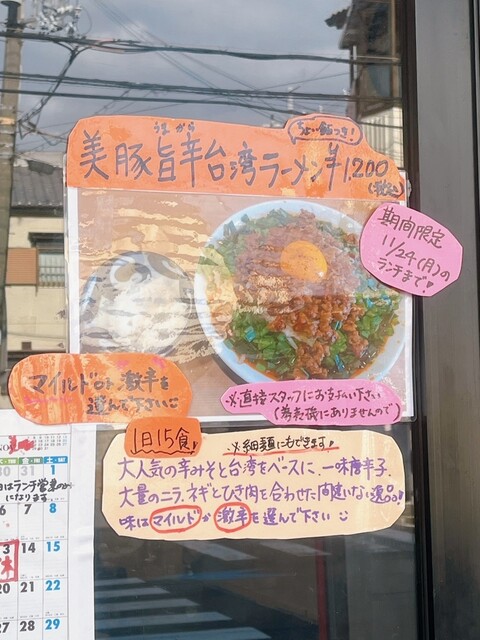 ちょい飯つき!
うま から
美豚旨辛台湾ラーメン¥1,200
(税込)
期間限定
11/24(月)の
ランチまで!
マイルドor激辛を
選んで下さい
※直接スタッフにお支払い下さい
(券売機にありませんので)
1日15食!
※細麺にもできます!
大人気の辛みそと台湾をベースに、一味唐辛子、
大量のニラ、ネギとひき肉を合わせた間違いない逸品!
味はマイルドか激辛を選んで下さい
木・THU 金・FRI 土・SAT
30 31 1
日はランチ営業のみ
になります
6 7 8
13 14 15
休
20 21 22
27 28 29